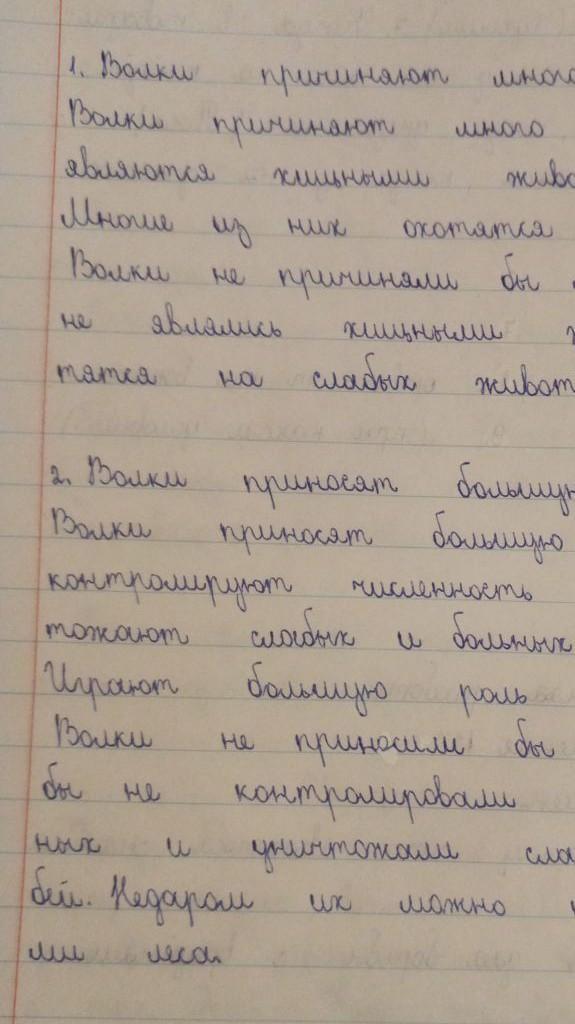 1. Волки причиняют много
Волки причиняют много
являются хищными живо
Многие из них охотятся
Волки не причиняли бы
не являлись хищными
тятся на слабых живот
2. Волки приносят большую
Волки приносят большую
контролируют численность
тожают слабых и больных
Играют большую роль
Волки не приносили бы
бы не контролировали
ных и уничтожали сла
бей. Недаром их можно
ми леса.